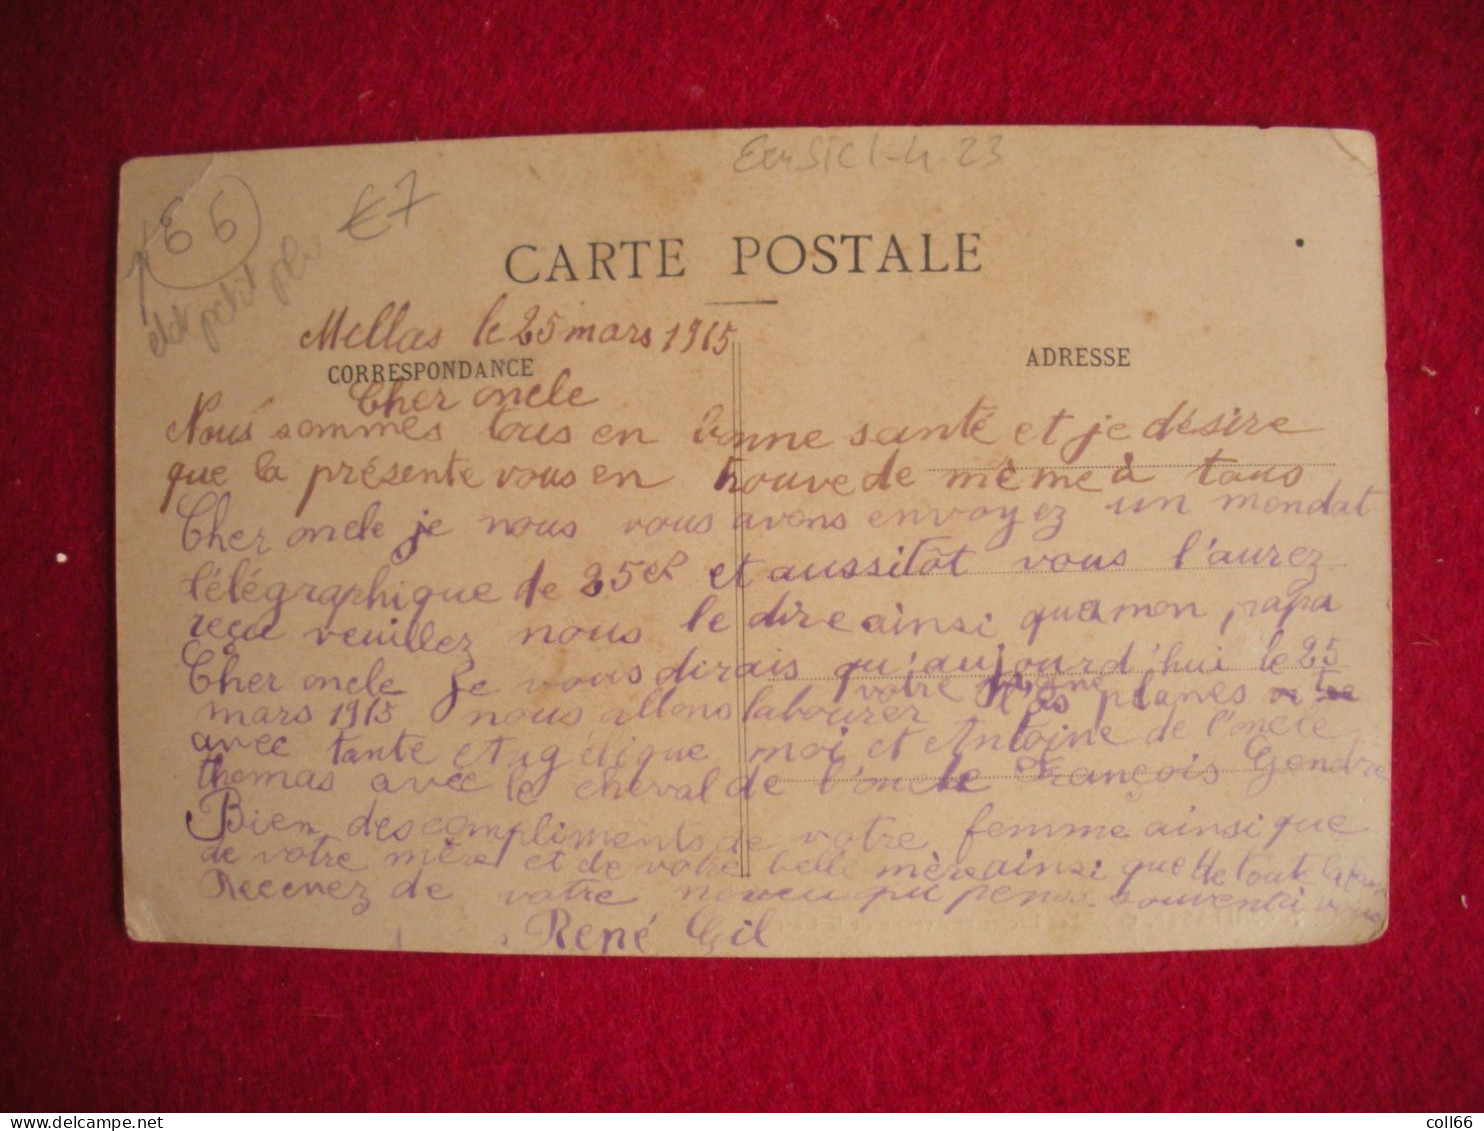 66
€7
petit pli
CARTE POSTALE
Mellas le 25 mars 1915
CORRESPONDANCE
ADRESSE
Cher oncle
Nous sommes tous en bonne santé et je désire
que la présente vous en trouve de même à tous
Cher oncle je nous vous avons envoyez un mandat
télégraphique de 25 et aussitôt vous l'aurez
reçu veuillez nous le dire ainsi qu'a mon papa
Cher oncle je vous dirais qu'aujourd'hui le 25
mars 1915 nous allons labourer votre vigne planes
avec tante Angélique moi et Antoine de l'oncle
thomas avec le cheval de l'oncle François Gendre
Bien des compliments de votre femme ainsi que
de votre mère et de votre belle mère ainsi que de toute la
Recevez de votre neveu qui pense souvent à vous
René Gil
delcampe.net
coll66